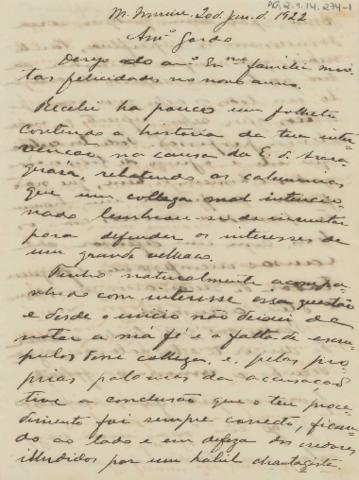 PG.2.9.14.274-1
20 d. Jan. d. 1922
Amº Gordo
Desejo ao amº Exma família mui
tas felicidades no novo anno.
Recebi ha pouco um folheto
contendo a historia da tua inter
venção na causa da E. d. Arara
quara, rebatendo as calumnias
que um collega mal intencio
nado lembrou-se de inventar
para defender os interesses de
um grande velhaco.
Tenho naturalmente acompa
nhado com interesse essa questão
e desde o inicio não deixei de
notar a má fé e a falta de escru
pulos desse collega, e, pelas pro
prias palavras da accusação
tive a conclusão que o teu proce
dimento foi sempre correcto, fican
do ao lado e em defeza dos credores
illudidos por um habil chantagista.